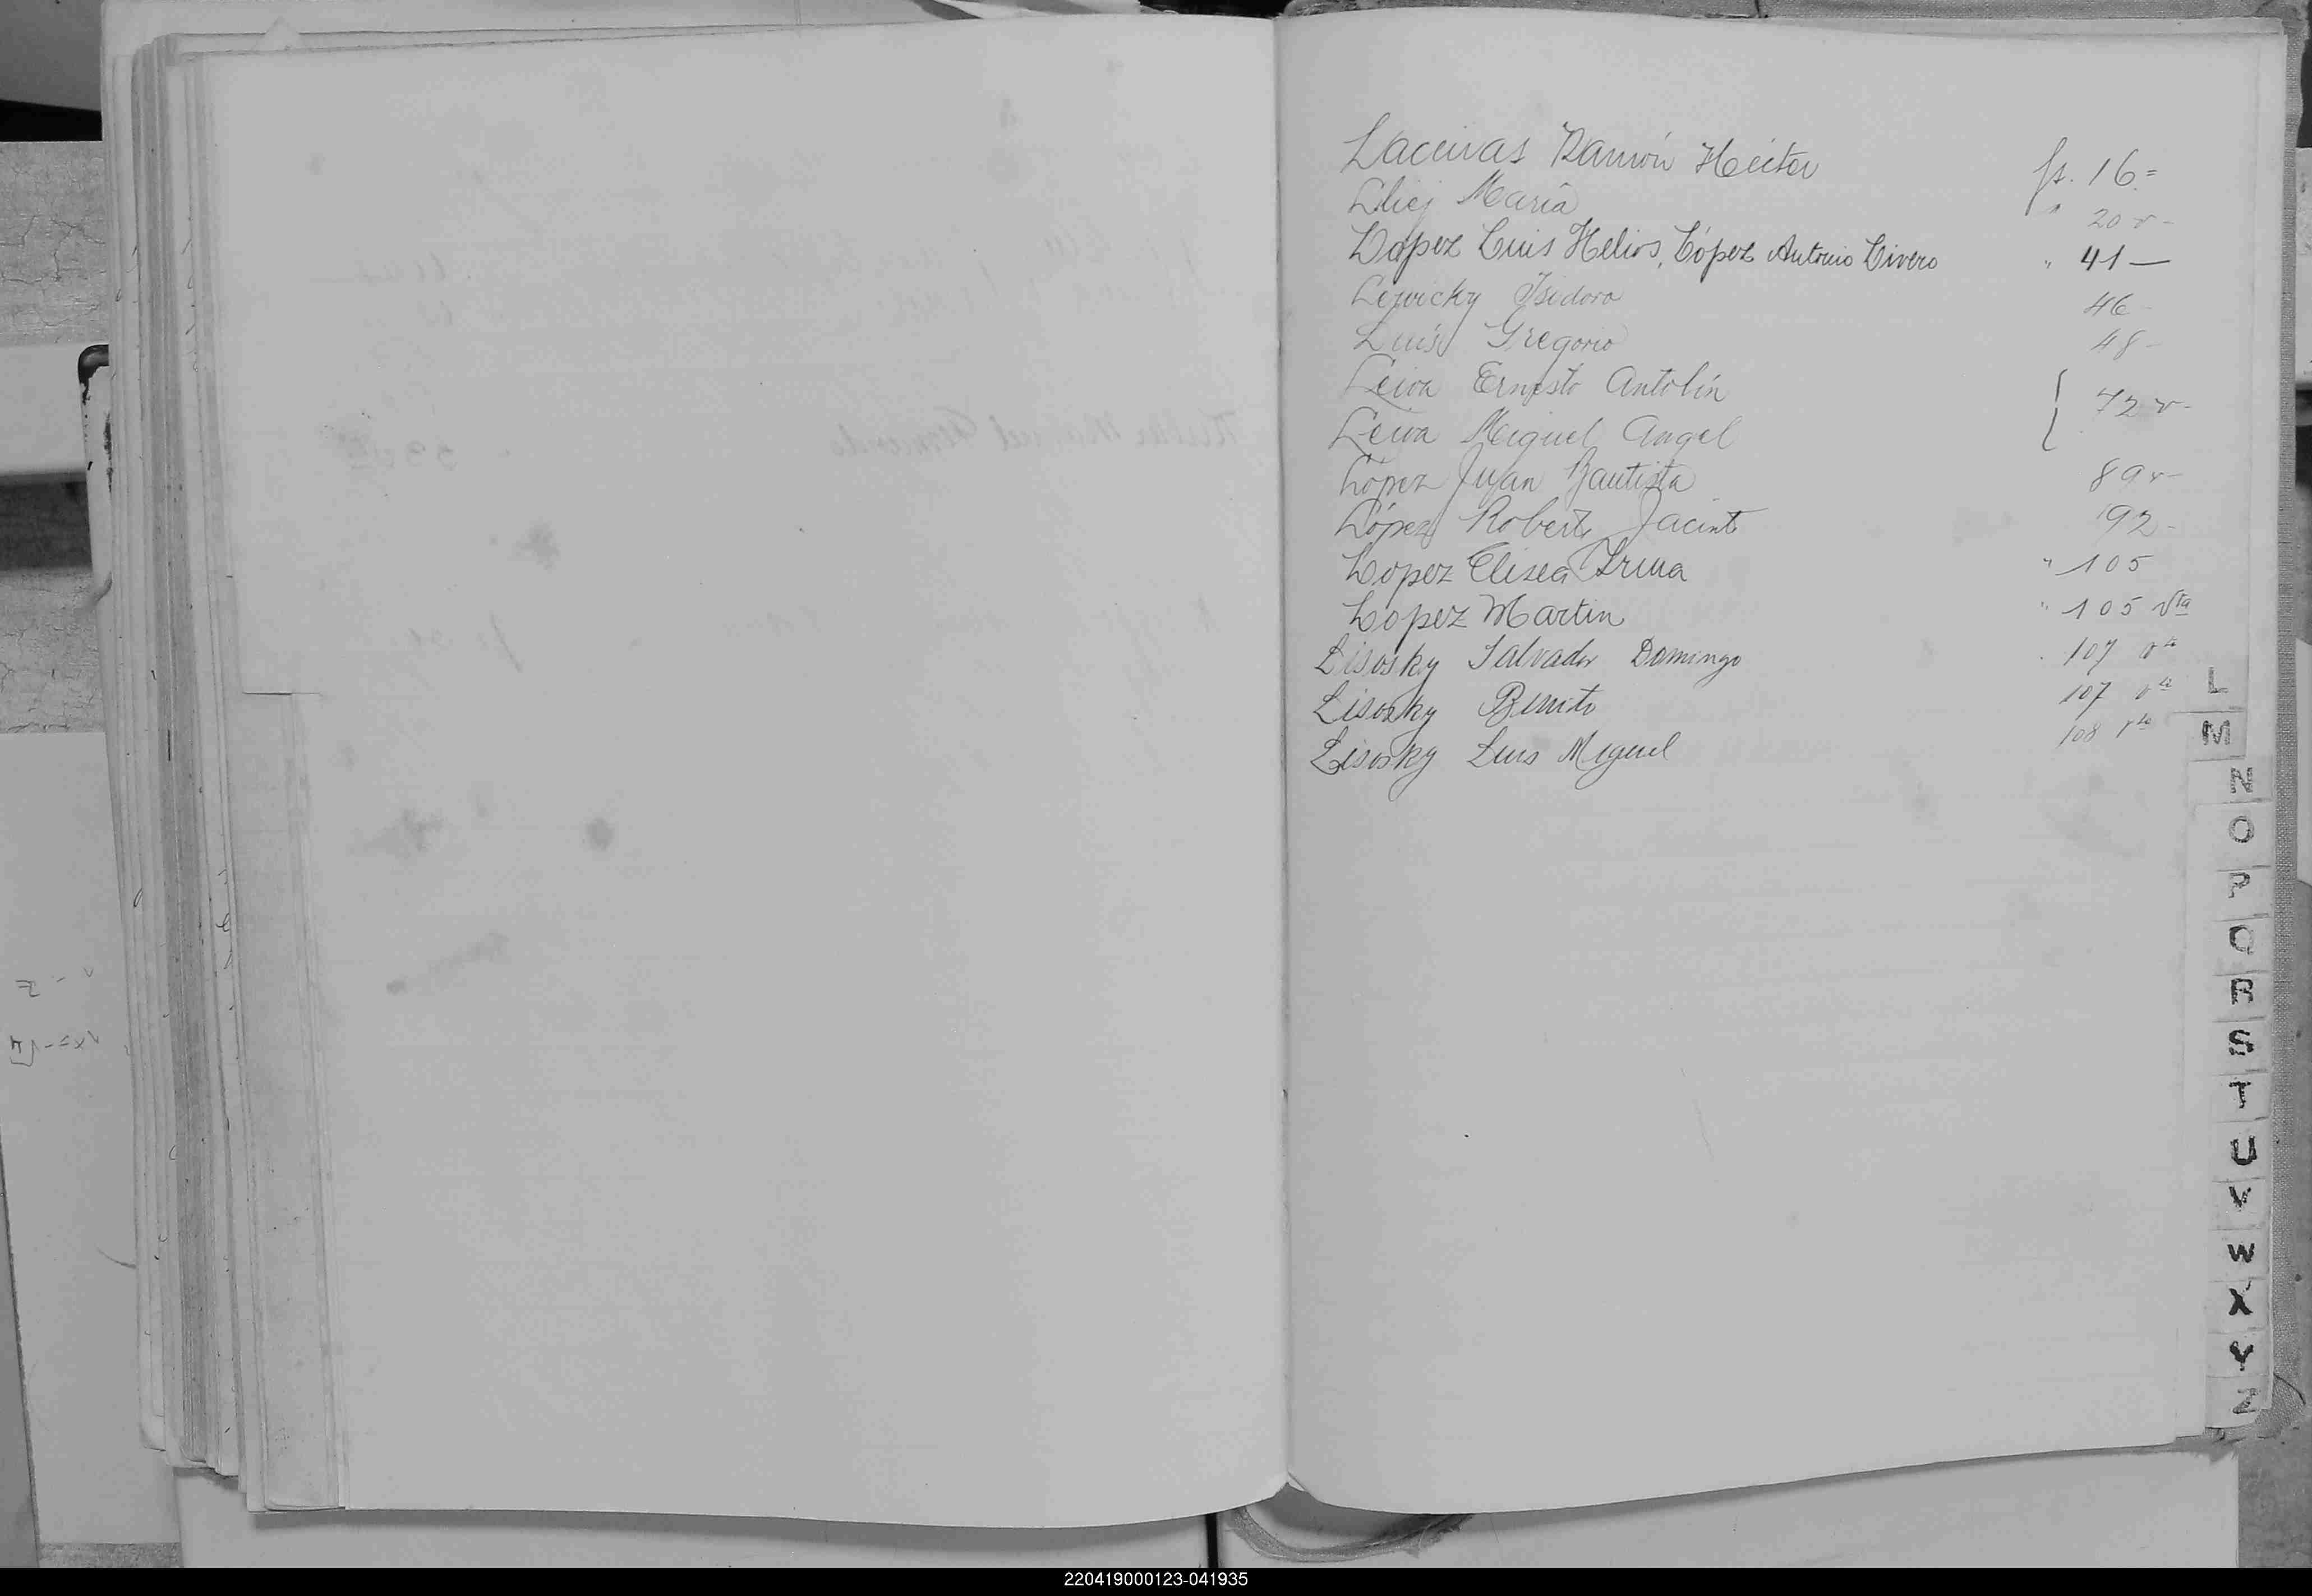 Ramón Héctor fs. 16.=
María " 20 v-
Lopez Luis Helios, López Antonio Livero " 41 —
Lewicky Isidoro 46 -
Luis Gregorio 48 -
Leiva Ernesto Antolín
72 v-
Leiva Miguel Angel
López Juan Bautista 89 v-
López Roberto Jacinto 92 -
Lopez Elisea Irma " 105
Lopez Martin " 105 Vta
Lisosky Salvador Domingo 107 vta
Lisosky Benito 107 vta
Lisosky Luis Miguel 108 vta
L
M
N
O
P
Q
R
S
T
U
V
W
X
Y
Z
220419000123-041935